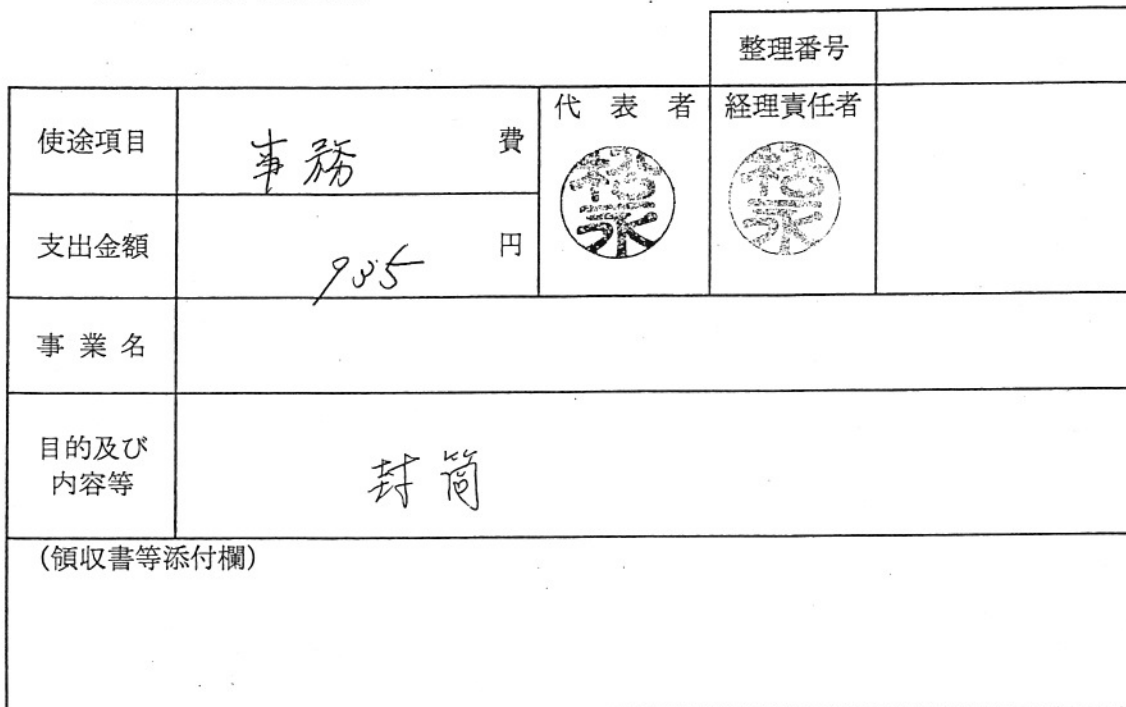 整理番号
使途項目 事務 費 代表者 経理責任者
支出金額 935 円
事業名
目的及び
内容等
封筒
(領収書等添付欄)